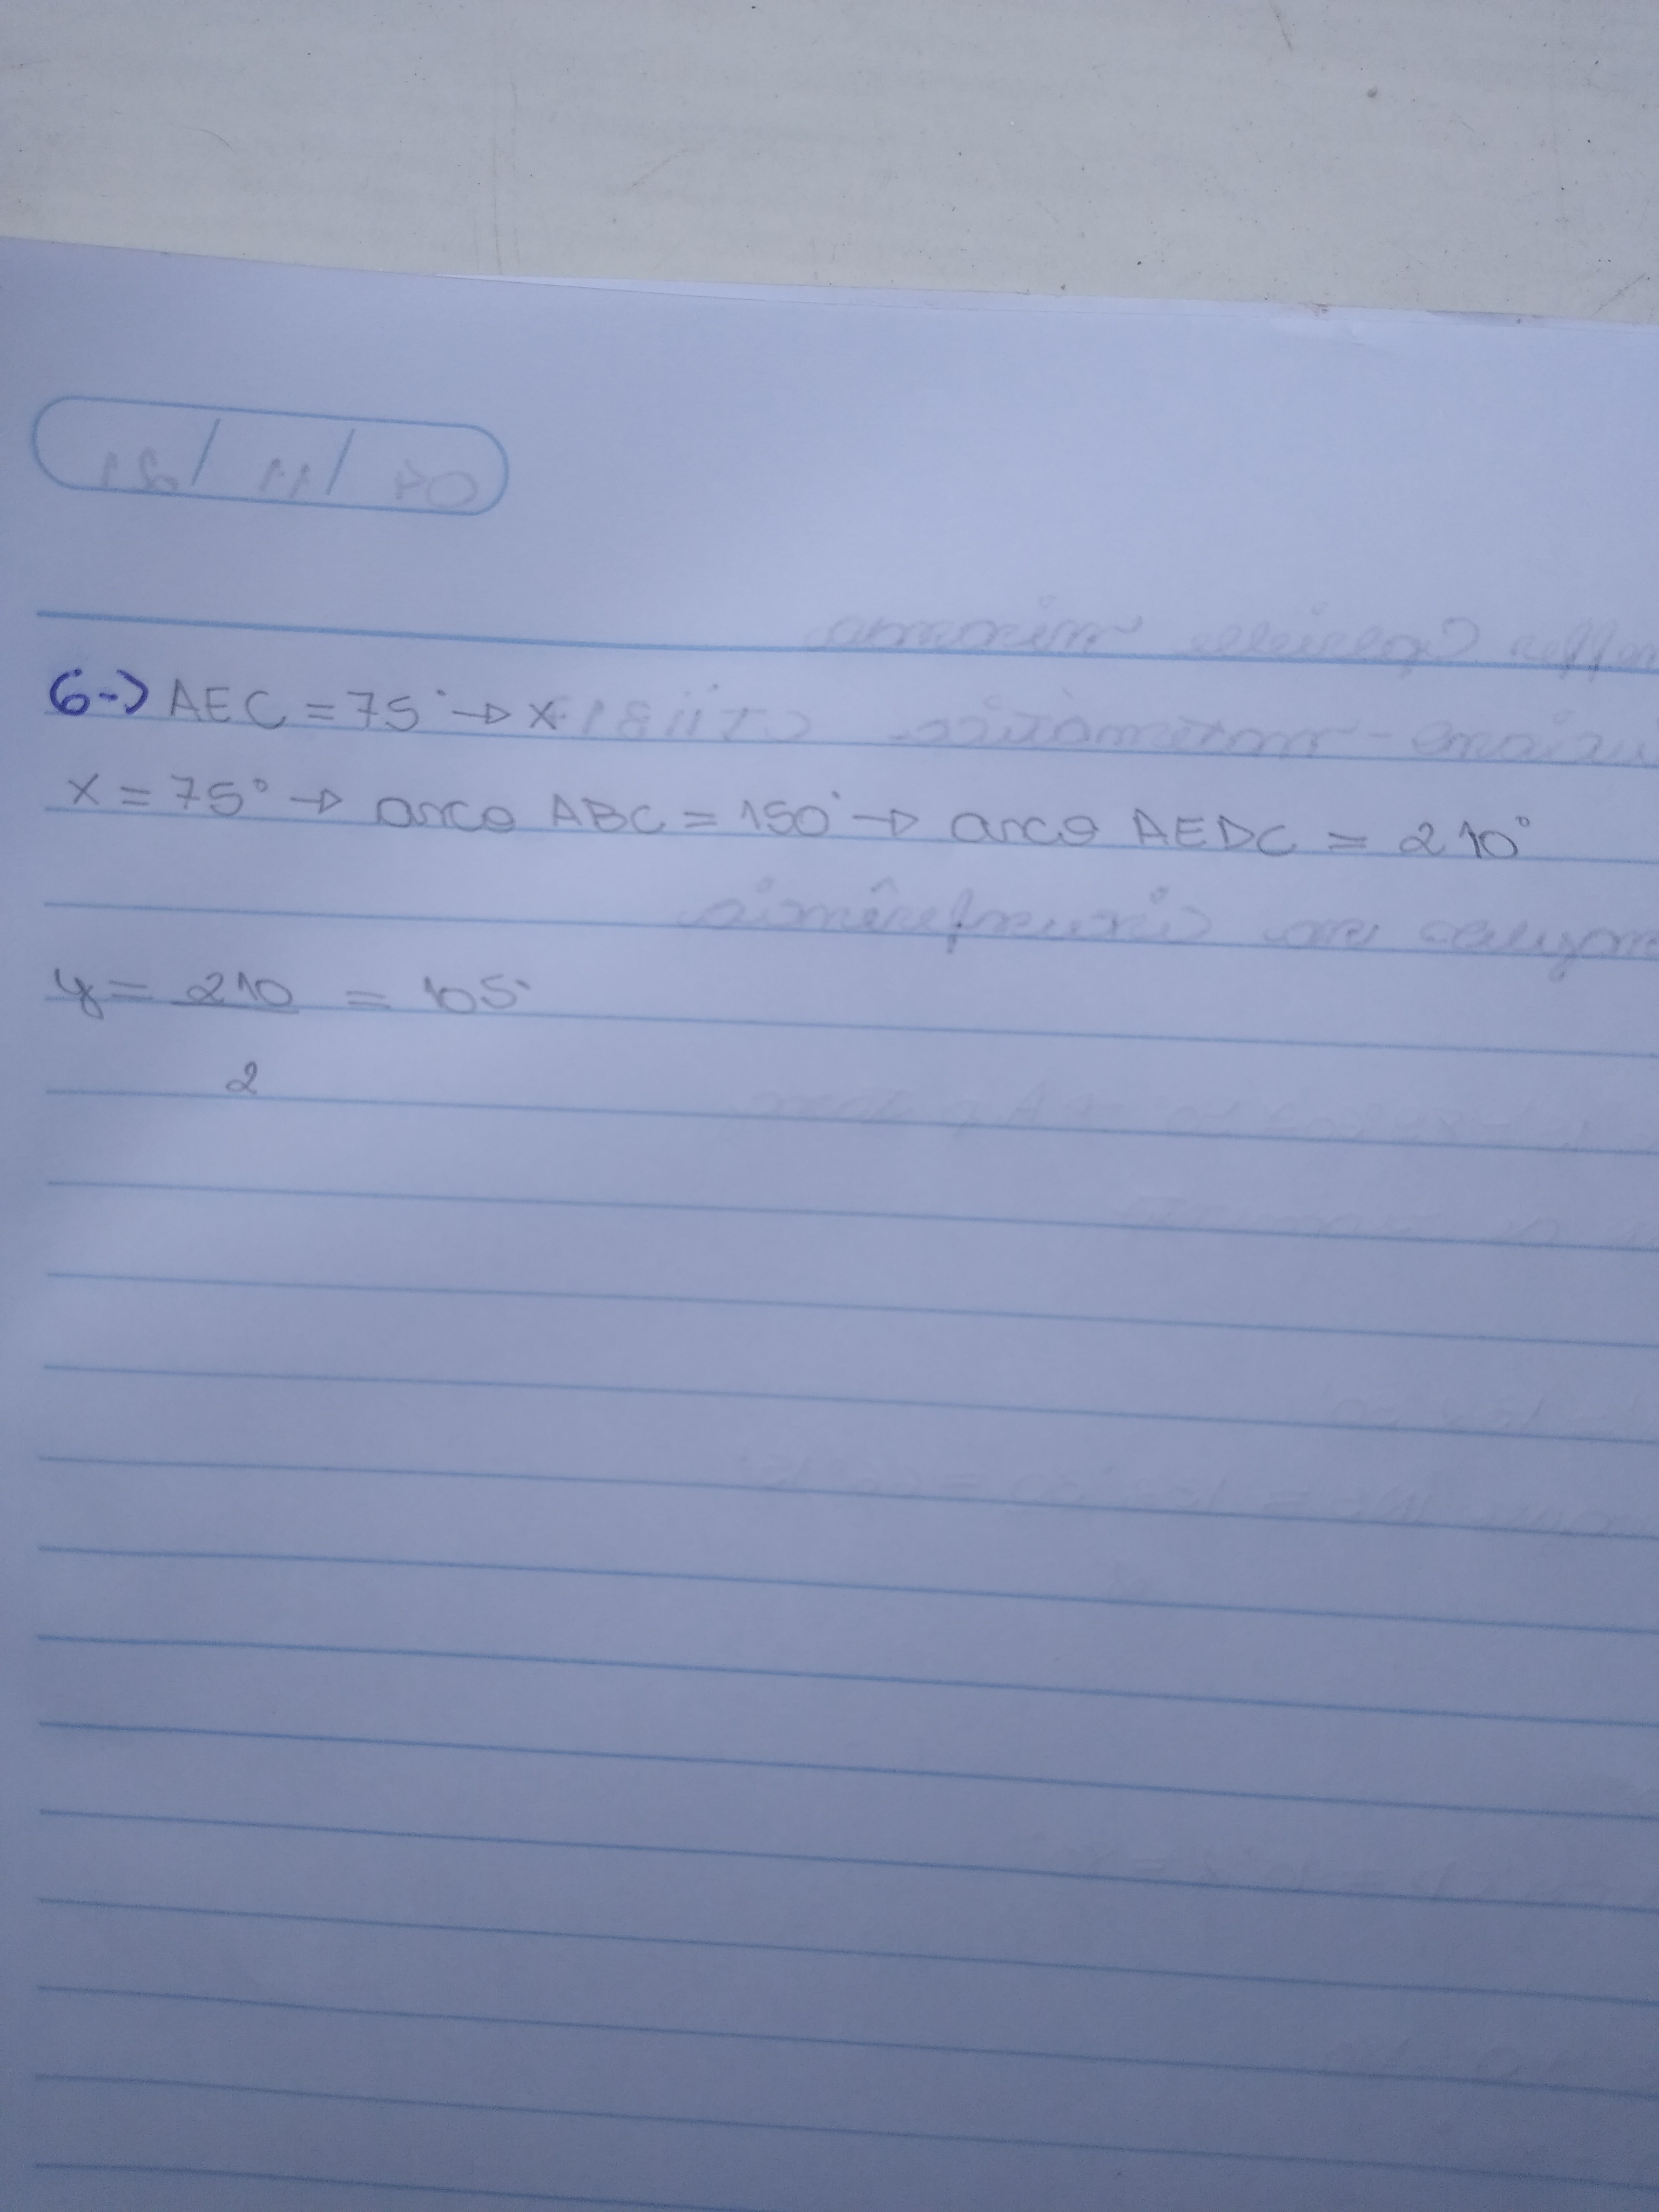 6-) AEC = 75° → x
x = 75° → arco ABC = 150° → arco AEDC = 210°
y = 210 = 105°
2